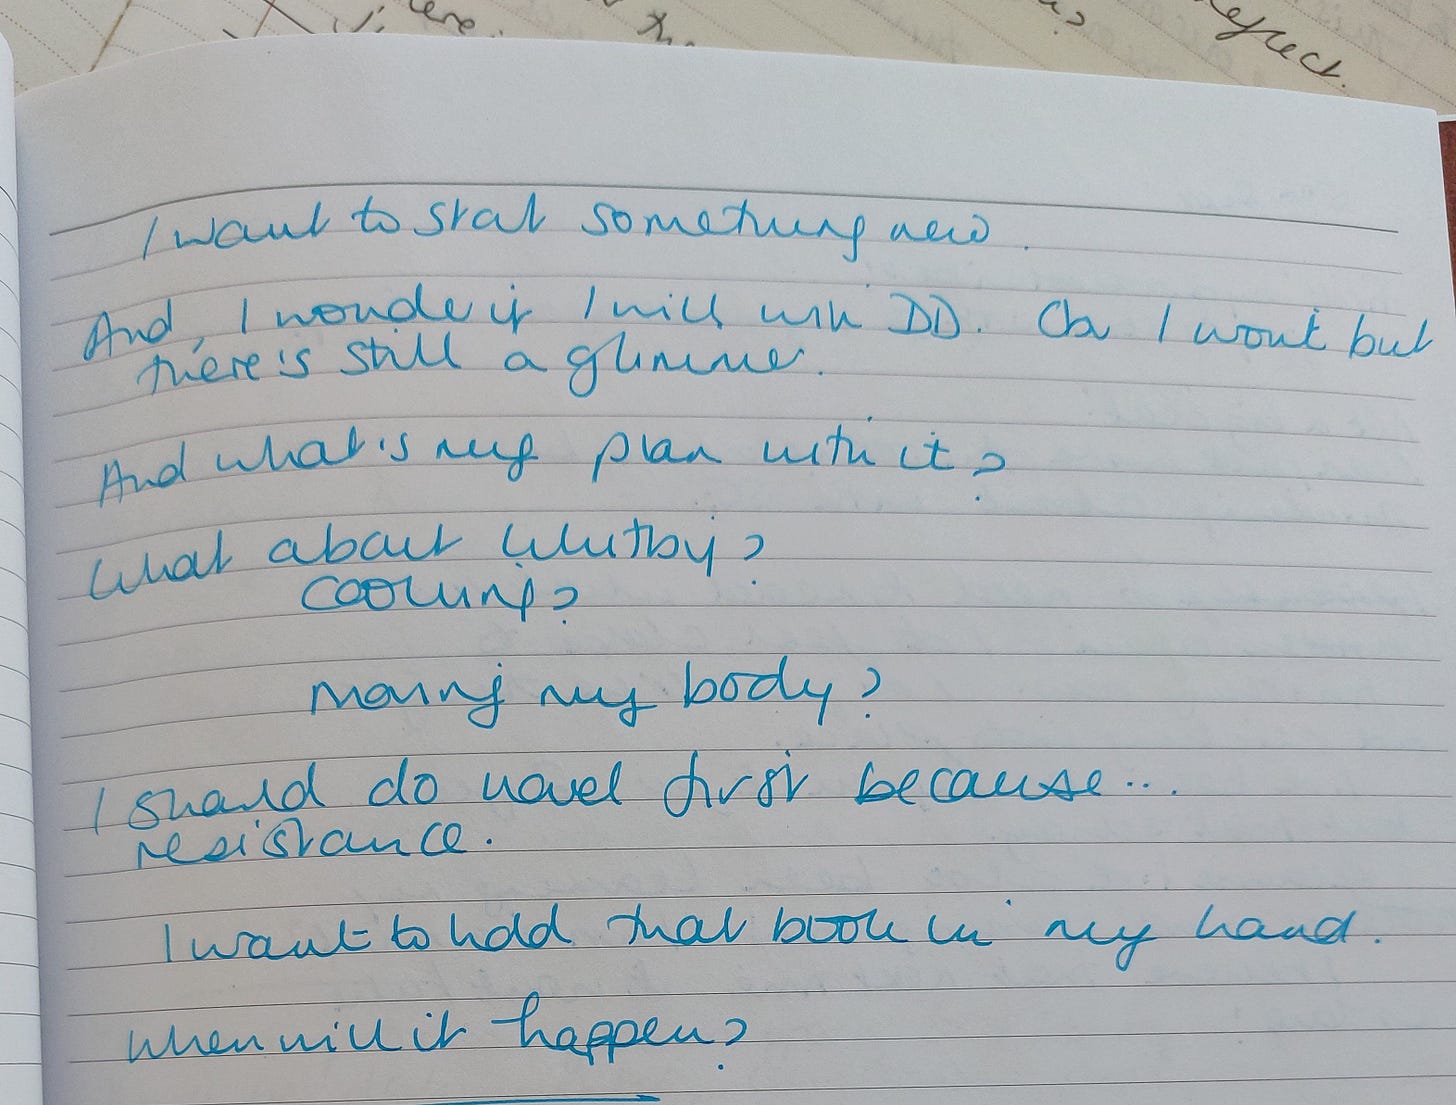 neglect.
I want to start something new.
And, I wonder if I will win DD. I won't but
there's still a glimmer.
And what is my plan with it?
What about Whitby?
Cooking?
Moving my body?
I should do novel first because...
resistance.
I want to hold that book in my hand.
When will it happen?